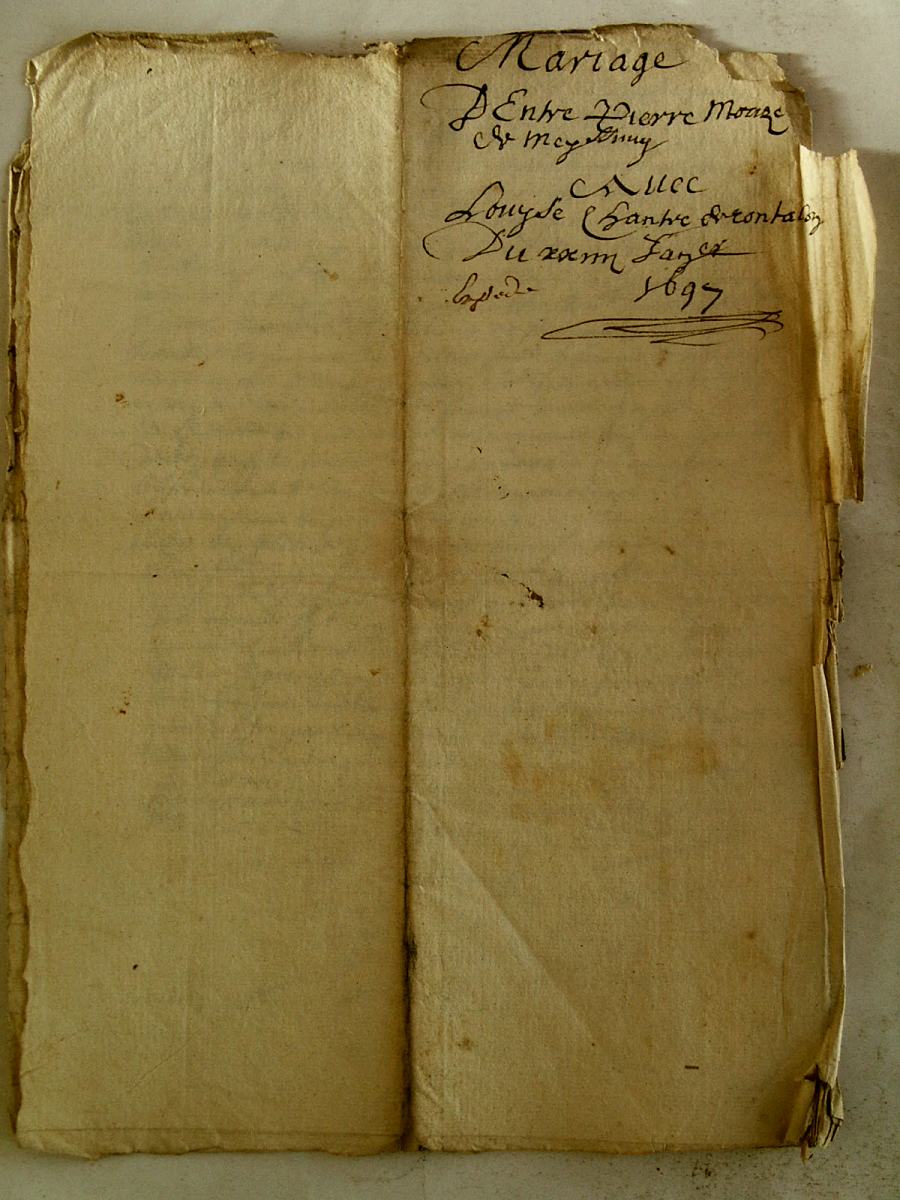 Mariage
D Entre Pierre Moaze
de Meyssmy
Auec
Louyse Chantre de rontalon
Du xxiiii Janer
Expedie 1697